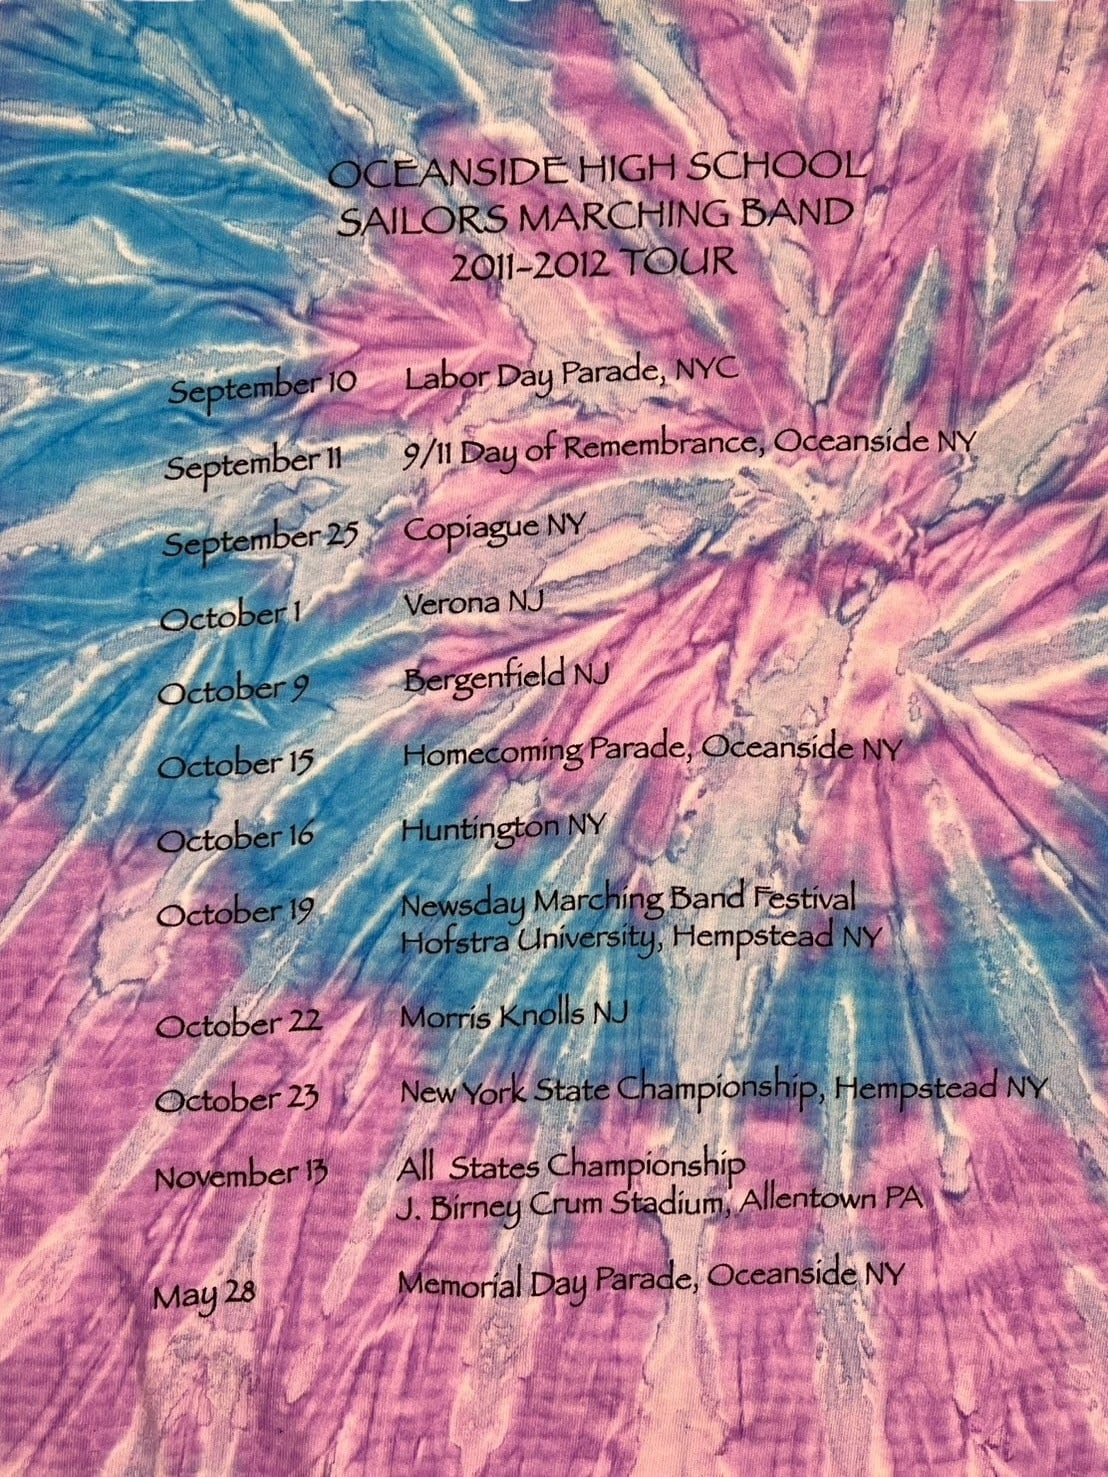 OCEANSIDE HIGH SCHOOL
SAILORS MARCHING BAND
2011-2012 TOUR
September 10 Labor Day Parade, NYC
September 11 9/11 Day of Remembrance, Oceanside NY
September 25 Copiague NY
October 1 Verona NJ
October 9 Bergenfield NJ
October 15 Homecoming Parade, Oceanside NY
October 16 Huntington NY
October 19 Newsday Marching Band Festival
Hofstra University, Hempstead NY
October 22 Morris Knolls NJ
October 23 New York State Championship, Hempstead NY
November 13 All States Championship
J. Birney Crum Stadium, Allentown PA
May 28 Memorial Day Parade, Oceanside NY